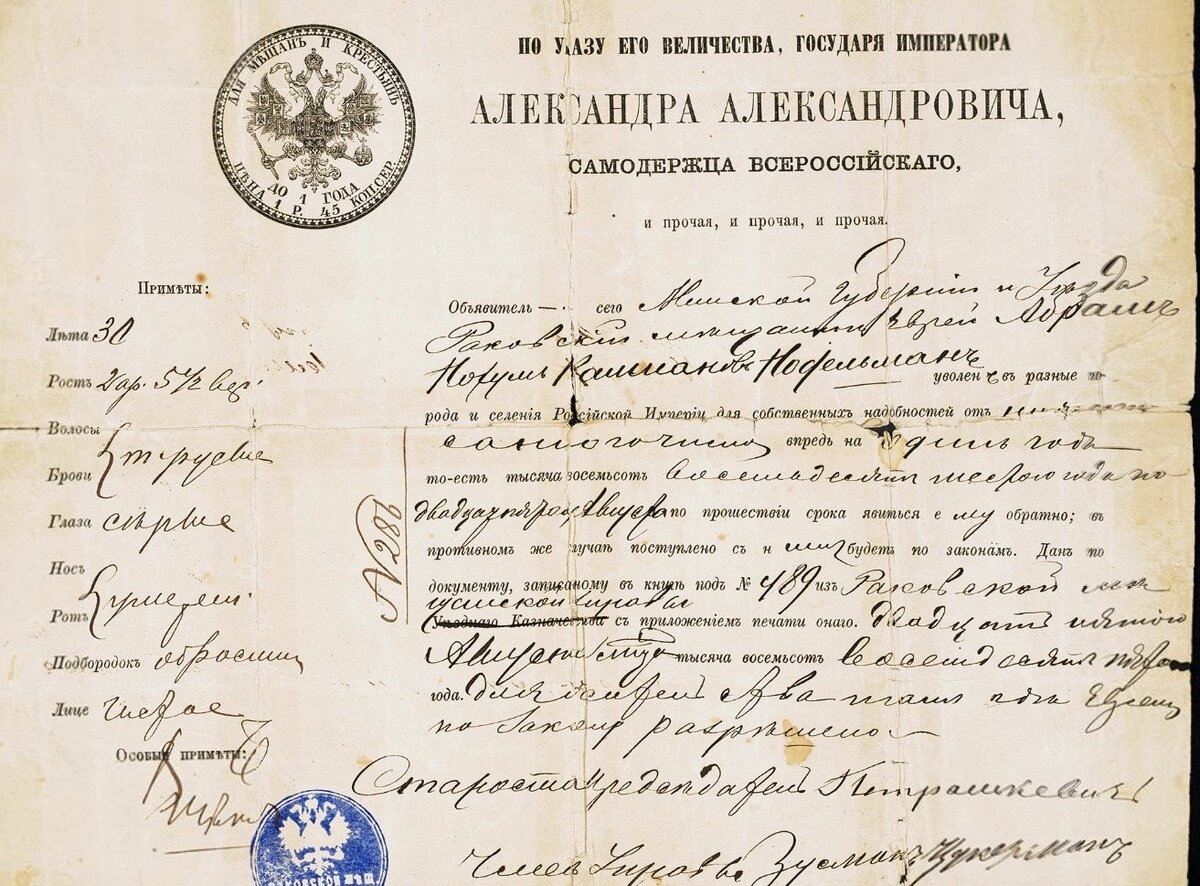 ПО УКАЗУ ЕГО ВЕЛИЧЕСТВА, ГОСУДАРЯ ИМПЕРАТОРА
АЛЕКСАНДРА АЛЕКСАНДРОВИЧА,
САМОДЕРЖЦА ВСЕРОССІЙСКАГО,
и прочая, и прочая, и прочая.
ДЛЯ МѢЩАНЪ И КРЕСТЬЯНЪ
ДО 1 ГОДА
ЦѢНА 1 Р. 45 КОП. СЕР.
Примѣты:
Лѣта 30
Ростъ 2 ар. 5 1/2 вер.
Волосы
Брови русые
Глаза сѣрые
Носъ
Ротъ
Подбородокъ обросшій
Лице чистое
Особыя примѣты:
Объявитель сего Минской Губерніи и Уѣзда
Раковскій мѣщанинъ Еврей Абрамъ
Нохумъ Нофельманъ уволенъ въ разные го
рода и селенія Россійской Имперіи для собственныхъ надобностей отъ
впредь на одинъ годъ
то-есть тысяча восемьсотъ восемьдесятъ шестого года по
Августа по прошествіи срока явиться ему обратно; въ
противномъ же случаѣ поступлено съ нимъ будетъ по законамъ. Данъ по
документу, записанному въ книгѣ подъ № 489 изъ Раковской мѣ
щанской Управы
Уѣзднаго Казначейства съ приложеніемъ печати онаго. двадцать пятого
Августа тысяча восемьсотъ восемьдесятъ пятого
года. Для жительства тамъ гдѣ Евреямъ
по Закону разрѣшено
№ 286
Староста Предсѣдатель Петрашкевичъ
Членъ Управы Зусманъ Цукерманъ